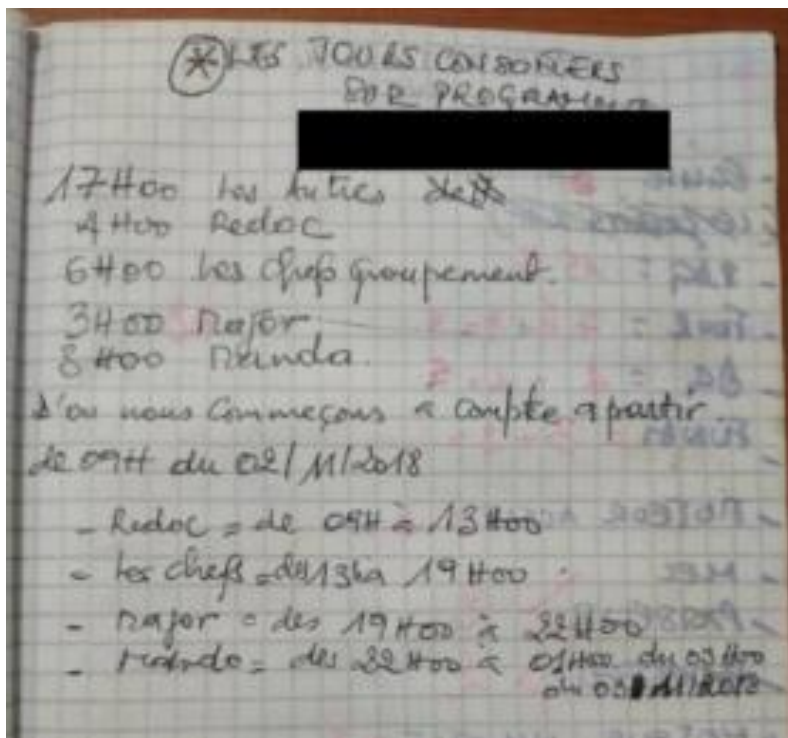 * LES JOURS CONSOMERS
SUR PROGRAMME
17H00 Les Autres
4H00 Redoc
6H00 Les Chefs groupement.
3H00 Major
8H00
d'ou nous Commeçons a compte apartir
de 09H du 02/11/2018
- Redoc = de 09H à 13H00
- Les chefs = des 13h a 19H00
- Major = des 19H00 à 22H00
- = des 22H00 a 01H00 du 03 H00
du 03/11/2018